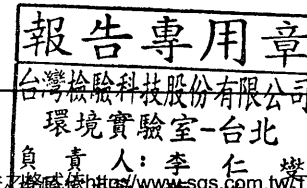 報告專用章
台灣檢驗科技股份有限公司
環境實驗室-台北
負責人：李仁燮
http://www.sgs.com.tw